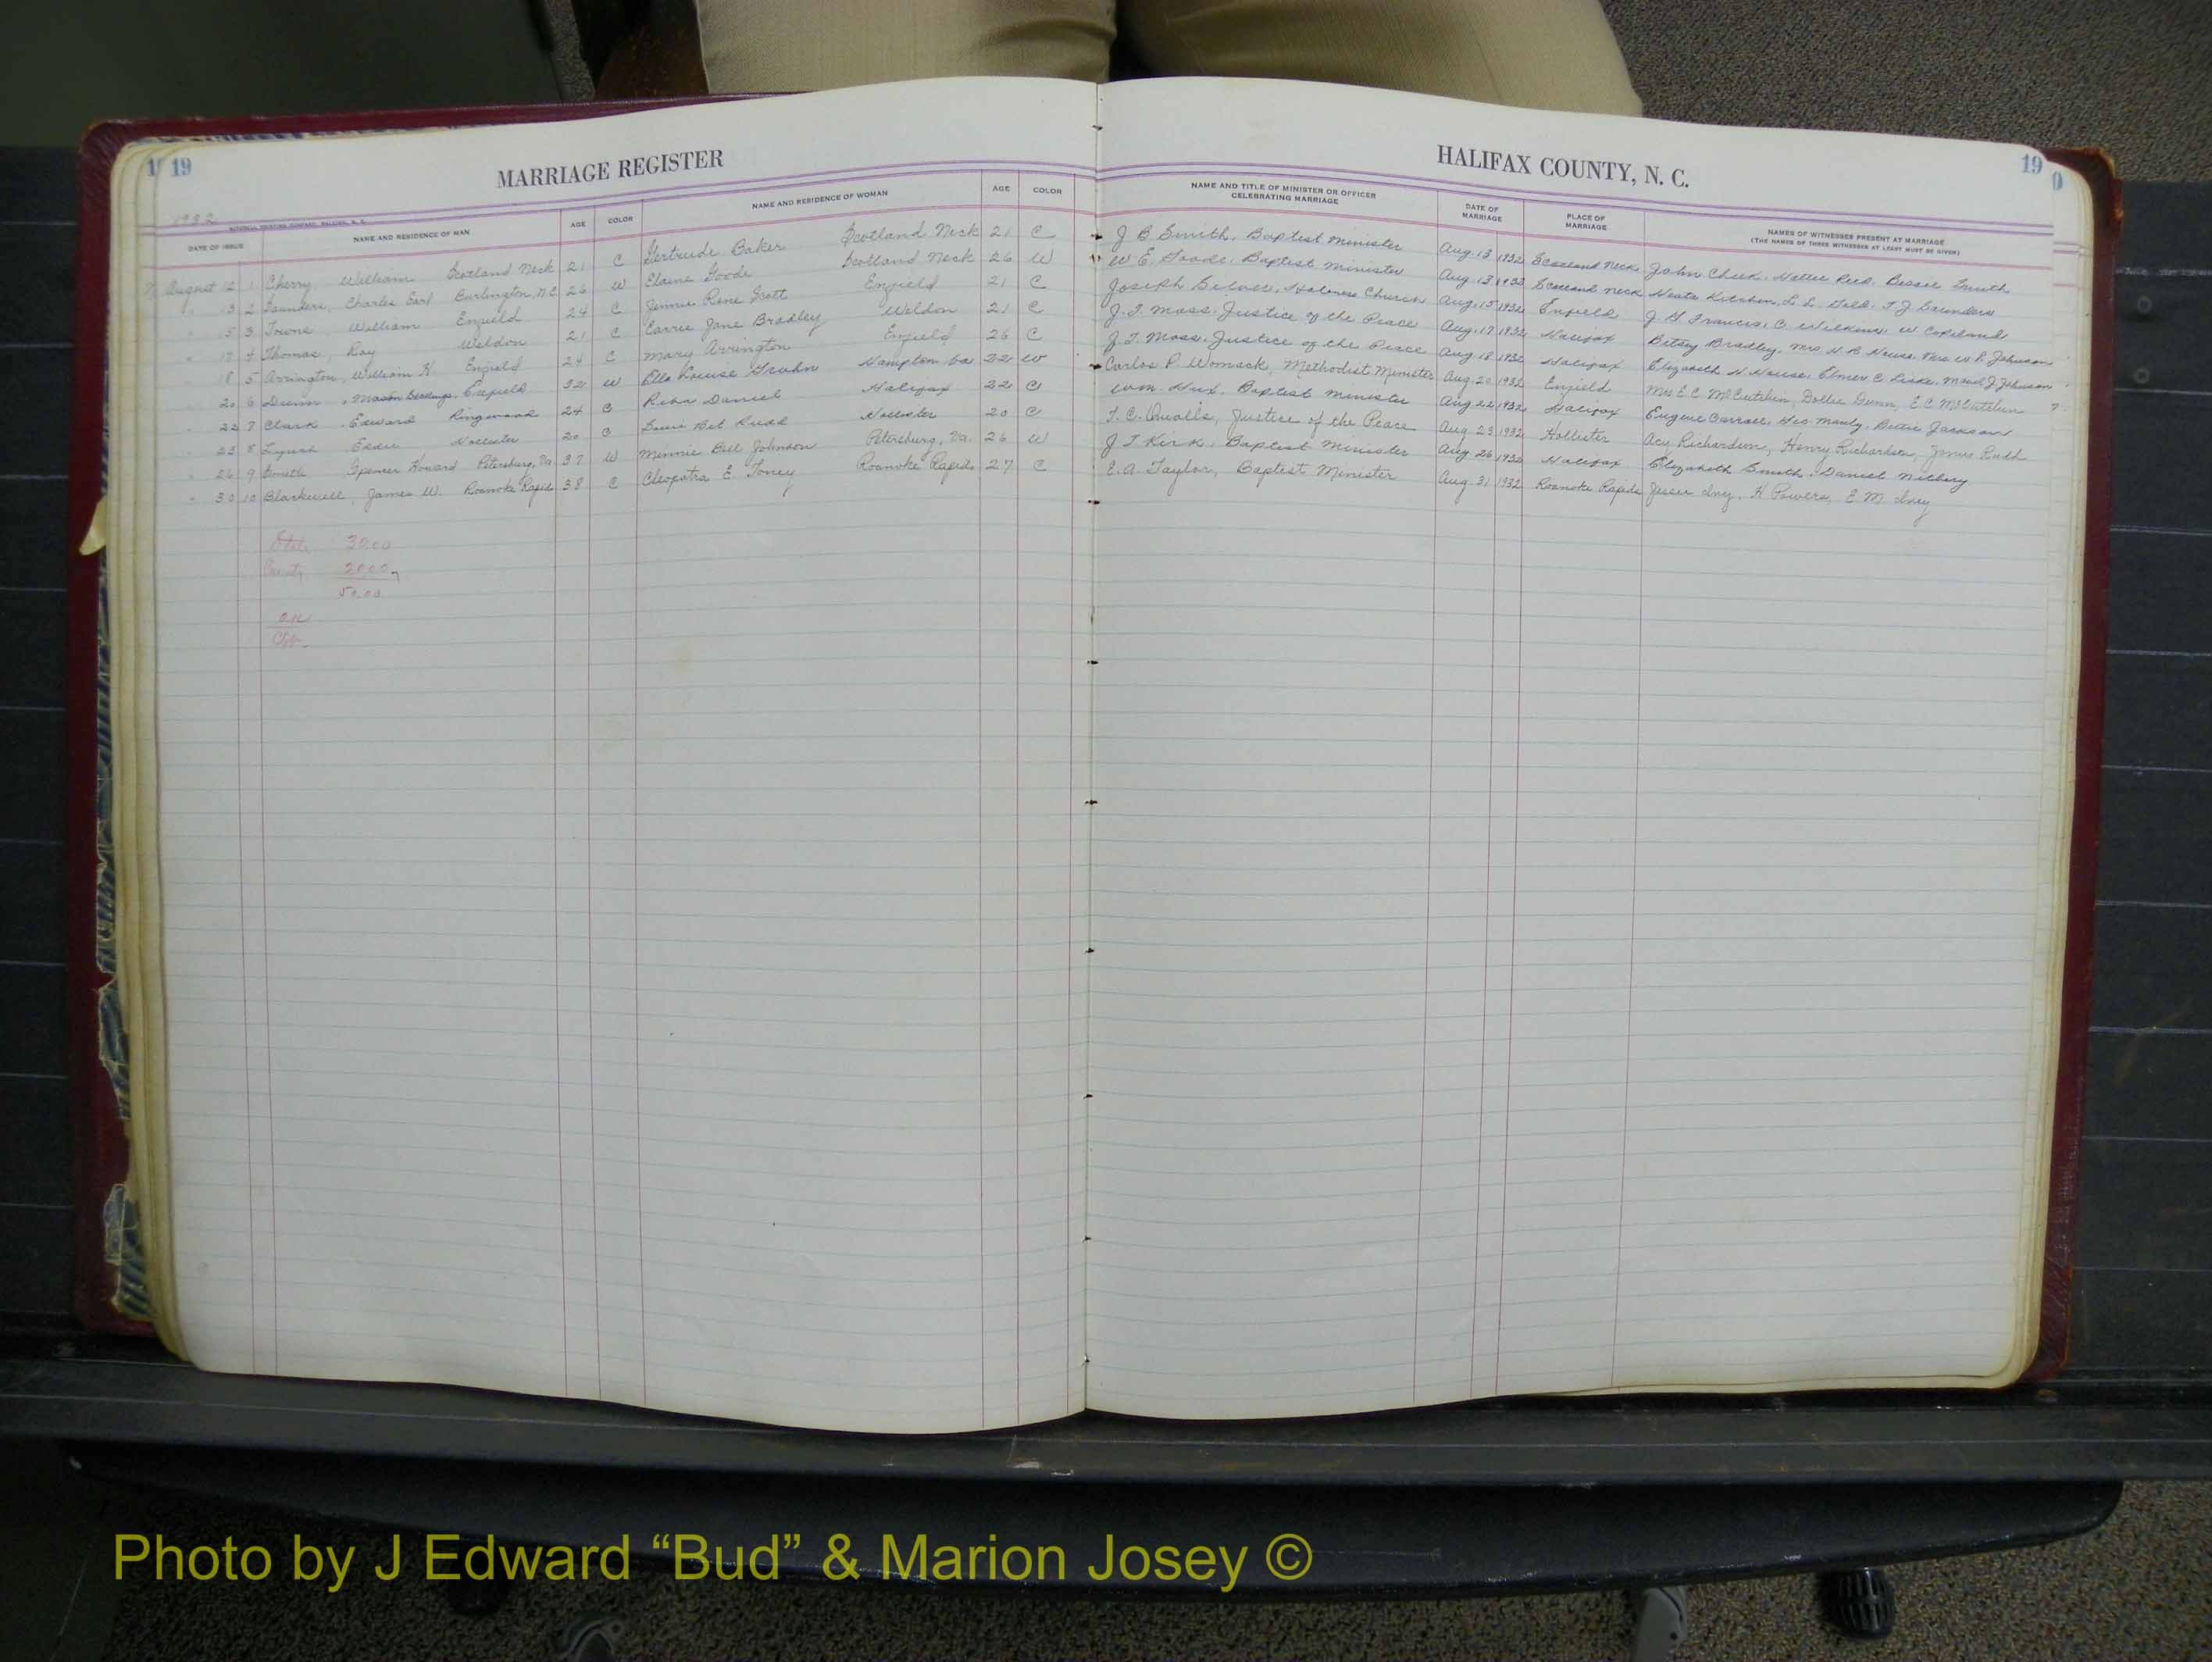 19 19
MARRIAGE REGISTER
HALIFAX COUNTY, N. C.
1932
DATE OF ISSUE NAME AND RESIDENCE OF MAN AGE COLOR NAME AND RESIDENCE OF WOMAN AGE COLOR NAME AND TITLE OF MINISTER OR OFFICER CELEBRATING MARRIAGE DATE OF MARRIAGE PLACE OF MARRIAGE NAMES OF WITNESSES PRESENT AT MARRIAGE (THE NAMES OF THREE WITNESSES AT LEAST MUST BE GIVEN)
August 12 1 Cherry, William Scotland Neck 21 C Gertrude Baker Scotland Neck 21 C J B Smith, Baptist Minister Aug. 13 1932 Scotland Neck John Cheek, Hattie Reid, Bessie Smith
" 13 2 Saunders, Charles Earl Burlington, N.C. 26 W Elaine Goode Scotland Neck 26 W W E. Goode, Baptist Minister Aug. 13 1932 Scotland Neck Kitchin, L. L. T J Saunders
" 15 3 Towns William Enfield 24 C Jennie Rene Scott Enfield 21 C Joseph Holiness Church Aug. 15 1932 Enfield J. H. Francis, C. Wilkins, W Copeland
" 17 4 Thomas, Roy Weldon 21 C Carrie Jane Bradley Weldon 21 C J. T. Moss, Justice of the Peace Aug. 17 1932 Halifax Betsey Bradley, Mrs H. B. House, Mrs W R Johnson
" 18 5 Arrington, William H Enfield 24 C Mary Arrington Enfield 26 C J. T. Moss, Justice of the Peace Aug 18 1932 Halifax Elizabeth N. House, Elmer C. J. Johnson
" 20 6 Dunn, Mason Enfield 32 W Ella Louise Hampton Va 22 W Carlos P. Womack, Methodist Minister Aug. 20 1932 Enfield Mrs E. C McCutchin, Dollie Dunn, E. C McCutchin
" 22 7 Clark, Edward Ringwood 24 C Reba Daniel Halifax 22 C Wm. Hux, Baptist Minister Aug 22 1932 Halifax Eugene Carroll, Geo. Manly, Bettie Jackson
" 23 8 Lynch Eddie Hollister 20 C Bet Rudd Hollister 20 C T. C. Qualls, Justice of the Peace Aug 23 1932 Hollister Acy Richardson, Henry Richardson, James Rudd
" 26 9 Smith Spencer Howard Petersburg, Va 37 W Minnie Bell Johnson Petersburg, Va. 26 W J T Kirk, Baptist Minister Aug 26 1932 Halifax Elizabeth Smith, Daniel
" 30 10 Blackwell, James W. Roanoke Rapids 38 C Cleopatra E. Toney Roanoke Rapids 27 C E. A. Taylor, Baptist Minister Aug 31 1932 Roanoke Rapids Jesse Ivey, H Powers, E M. Ivey
State 30.00
County 20.00
50.00
O.K
Photo by J Edward “Bud” & Marion Josey ©